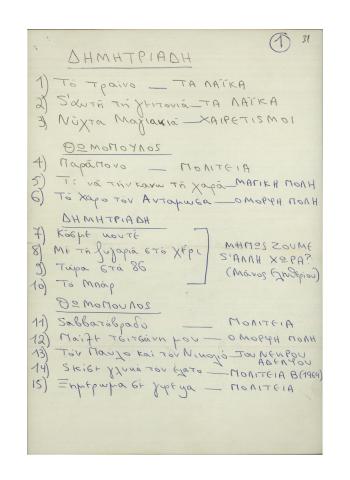 1 31
ΔΗΜΗΤΡΙΑΔΗ
1) Τό τραίνο — ΤΑ ΛΑΪΚΑ
2) Σ'αυτή τη γειτονιά — ΤΑ ΛΑΪΚΑ
3) Νύχτα Μαγιακιά — ΧΑΙΡΕΤΙΣΜΟΙ
ΘΩΜΟΠΟΥΛΟΣ
4) Παράπονο — ΠΟΛΙΤΕΙΑ
5) Τί νά τήν κανω τή χαρά — ΜΑΓΙΚΗ ΠΟΛΗ
6) Τό Χάρο τον Ανταμωσα — ΟΜΟΡΦΗ ΠΟΛΗ
ΔΗΜΗΤΡΙΑΔΗ
7) Κόσμε
8) Μέ τή ζυγαριά στό χέρι
9) Τώρα στά 86
10) Τό Μπάρ
ΜΗΠΩΣ ΖΟΥΜΕ
Σ'ΑΛΛΗ ΧΩΡΑ?
(Μάνος Ελευθερίου)
ΘΩΜΟΠΟΥΛΟΣ
11) Σαββατόβραδο — ΠΟΛΙΤΕΙΑ
12) τσιτσάνη μου — ΟΜΟΡΦΗ ΠΟΛΗ
13) Τόν Παυλο και τόν Νικολιό — ΤΟΥ ΝΕΚΡΟΥ ΑΔΕΛΦΟΥ
14) Στις γλυκό τον — ΠΟΛΙΤΕΙΑ Β (1964)
15) Ξημέρωμα σε — ΠΟΛΙΤΕΙΑ